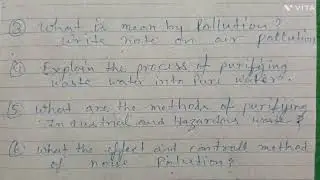 VITA
③ What is mean by Pollution?
Write note on air pollution
④ Explain the process of purifying
waste water into Pure water.
⑤ what are the methods of purifying
Industrial and Hazardous waste?
⑥ what the effect and controll method
of noise Pollution?